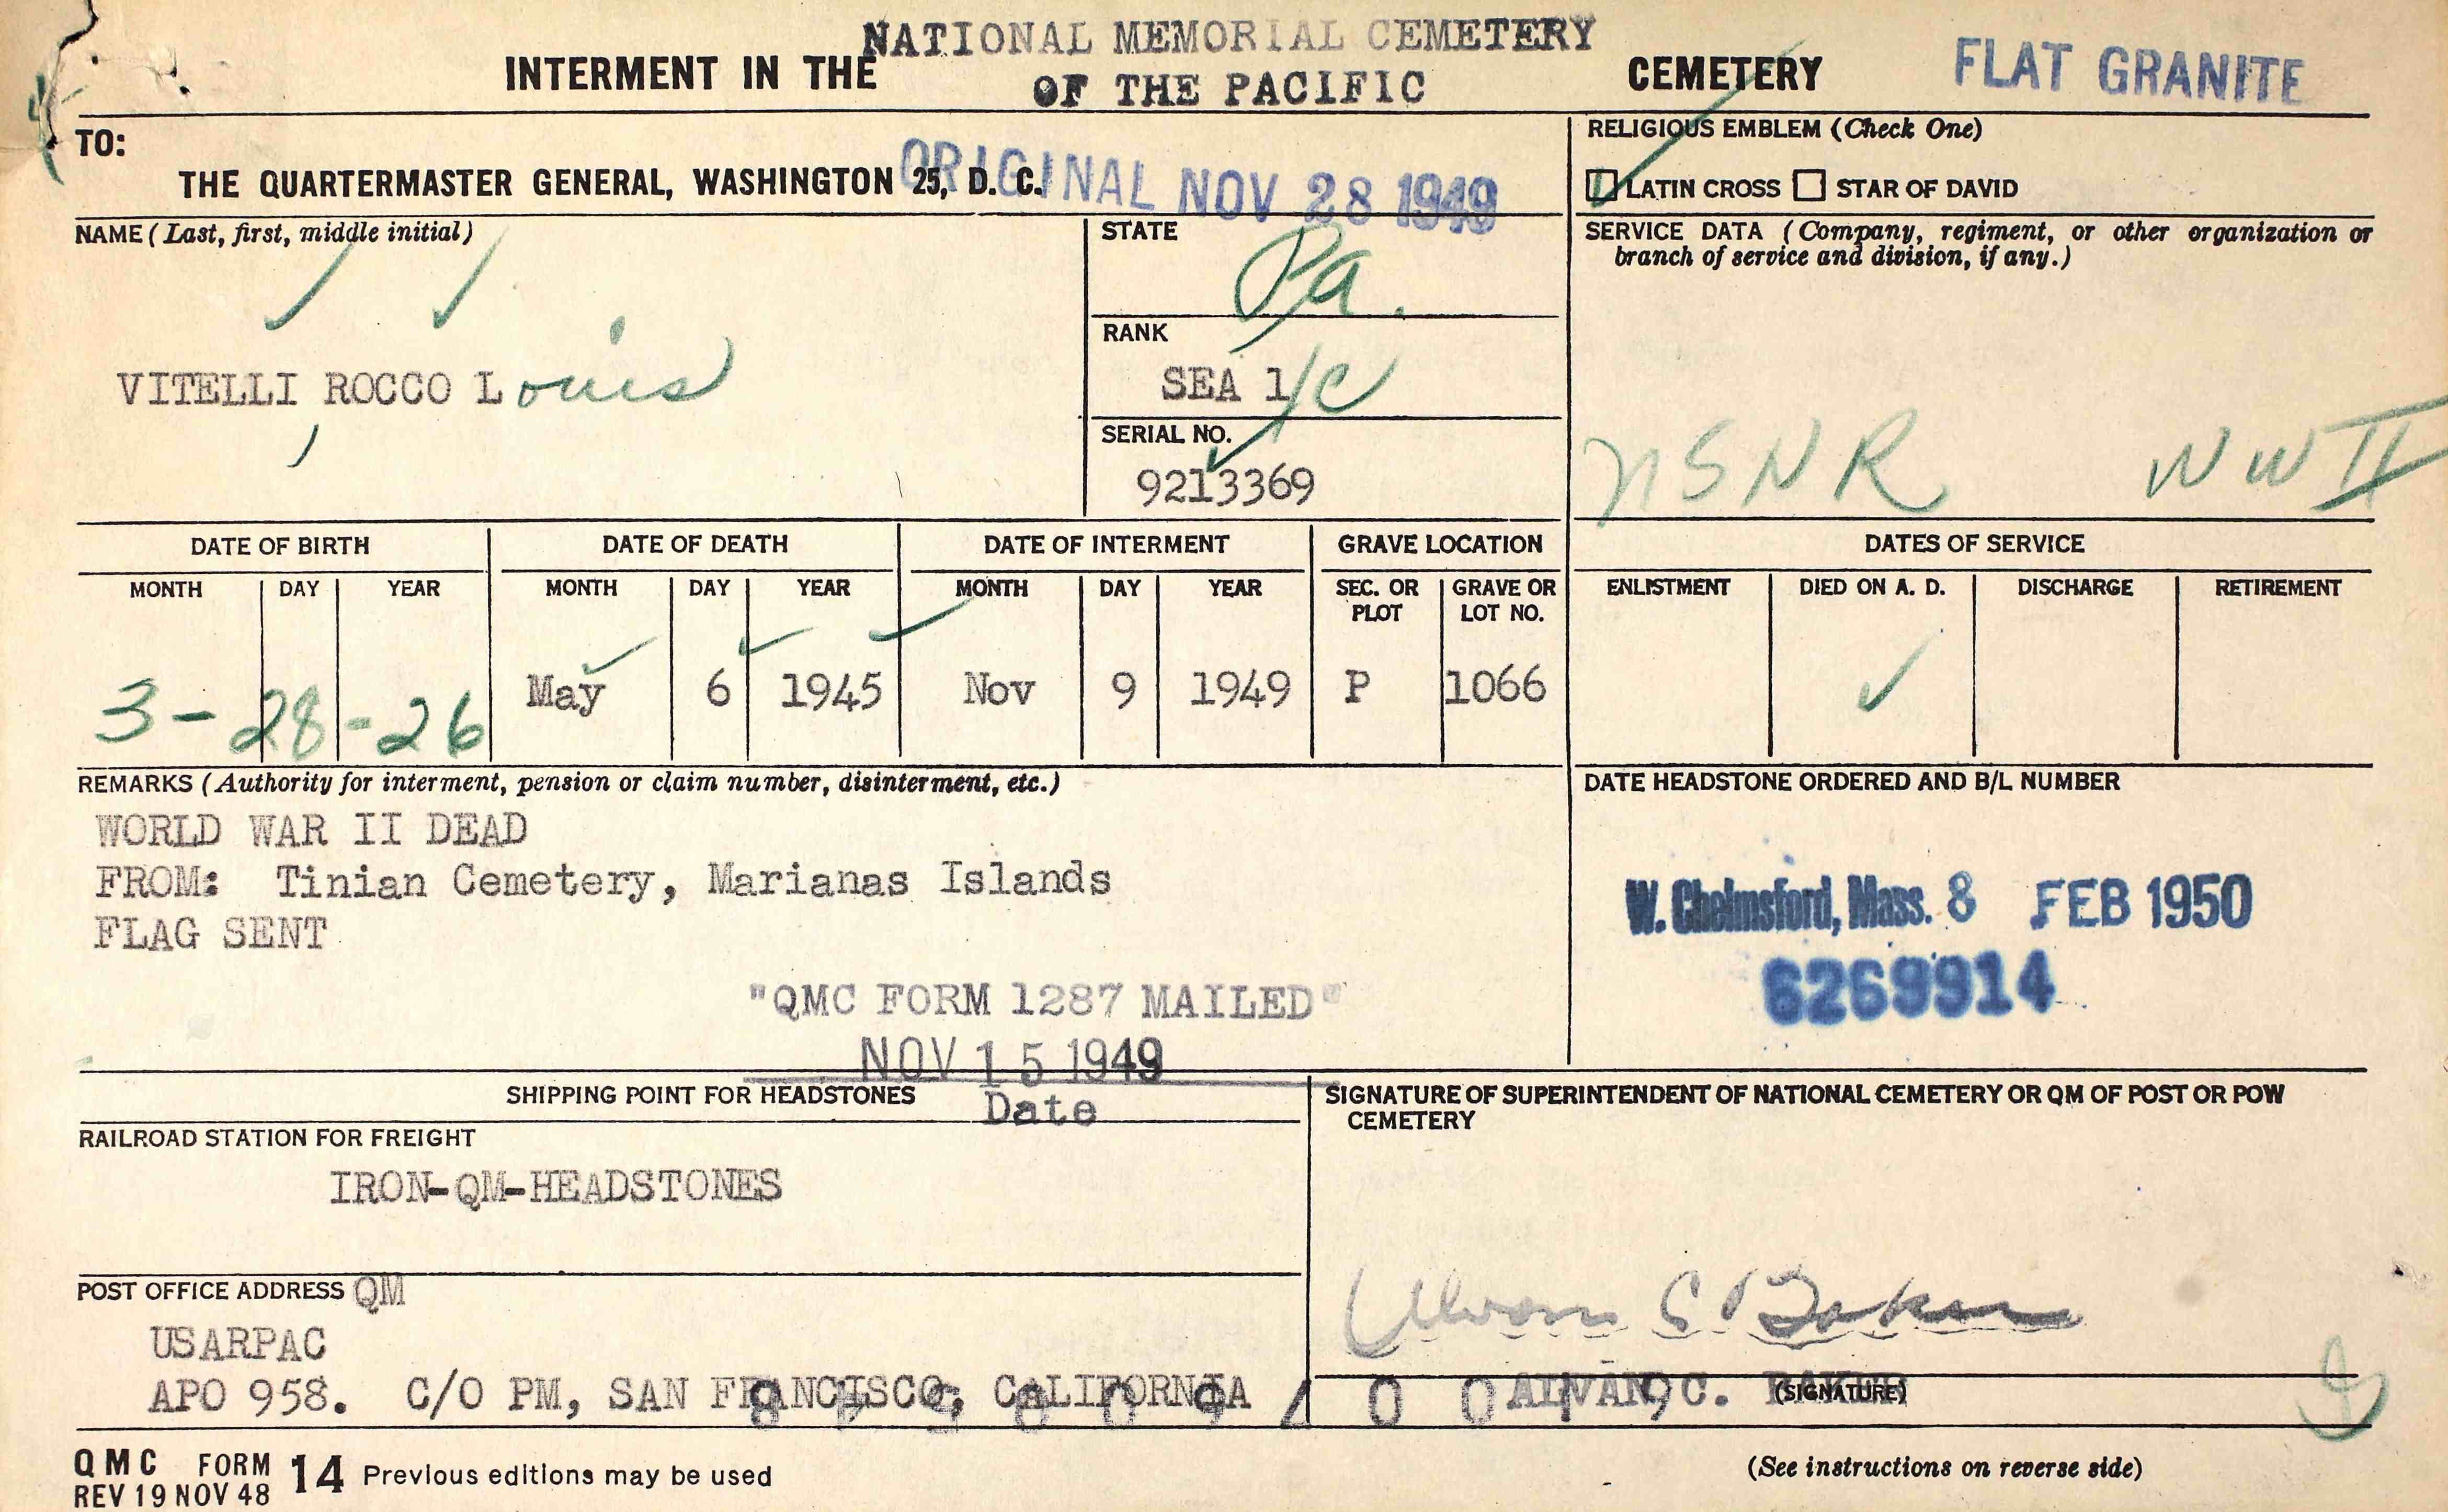 NATIONAL MEMORIAL CEMETERY
INTERMENT IN THE OF THE PACIFIC CEMETERY FLAT GRANITE
TO:
THE QUARTERMASTER GENERAL, WASHINGTON 25, D. C.
ORIGINAL NOV 28 1949
RELIGIOUS EMBLEM (Check One)
LATIN CROSS STAR OF DAVID
NAME (Last, first, middle initial)
VITELLI ROCCO Louis
,
STATE
Pa.
RANK
SEA 1/C
SERIAL NO.
9213369
SERVICE DATA (Company, regiment, or other organization or
branch of service and division, if any.)
NSNR WW II
DATE OF BIRTH DATE OF DEATH DATE OF INTERMENT GRAVE LOCATION DATES OF SERVICE
MONTH DAY YEAR MONTH DAY YEAR MONTH DAY YEAR SEC. OR PLOT GRAVE OR LOT NO. ENLISTMENT DIED ON A. D. DISCHARGE RETIREMENT
3-28-26 May 6 1945 Nov 9 1949 P 1066
REMARKS (Authority for interment, pension or claim number, disinterment, etc.)
WORLD WAR II DEAD
FROM: Tinian Cemetery, Marianas Islands
FLAG SENT
"QMC FORM 1287 MAILED"
NOV 15 1949
Date
DATE HEADSTONE ORDERED AND B/L NUMBER
W. Chelmsford, Mass. 8 FEB 1950
6269914
SHIPPING POINT FOR HEADSTONES
RAILROAD STATION FOR FREIGHT
IRON-QM-HEADSTONES
POST OFFICE ADDRESS QM
USARPAC
APO 958. C/O PM, SAN FRANCISCO, CALIFORNIA
SIGNATURE OF SUPERINTENDENT OF NATIONAL CEMETERY OR QM OF POST OR POW
CEMETERY
Alvan C Baker
ALVAN C. BAKER
(SIGNATURE)
QMC FORM 14 Previous editions may be used
REV 19 NOV 48
(See instructions on reverse side)